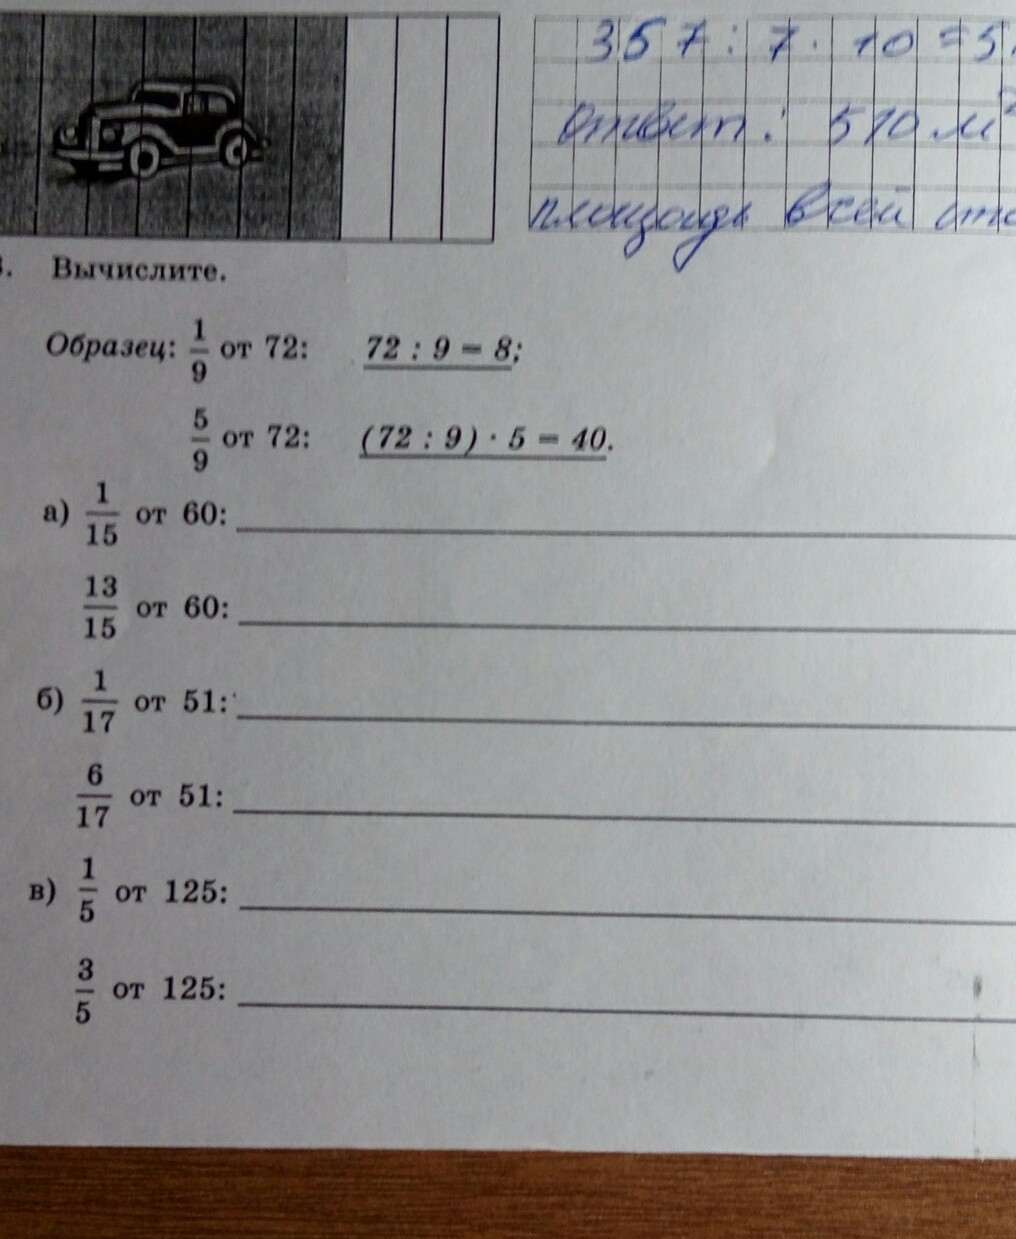 357 : 7 · 10 = 5
Ответ: 510 м²
площадь всей сто
3. Вычислите.
Образец: 1/9 от 72: 72 : 9 = 8;
5/9 от 72: (72 : 9) · 5 = 40.
а) 1/15 от 60:
13/15 от 60:
б) 1/17 от 51:
6/17 от 51:
в) 1/5 от 125:
3/5 от 125: